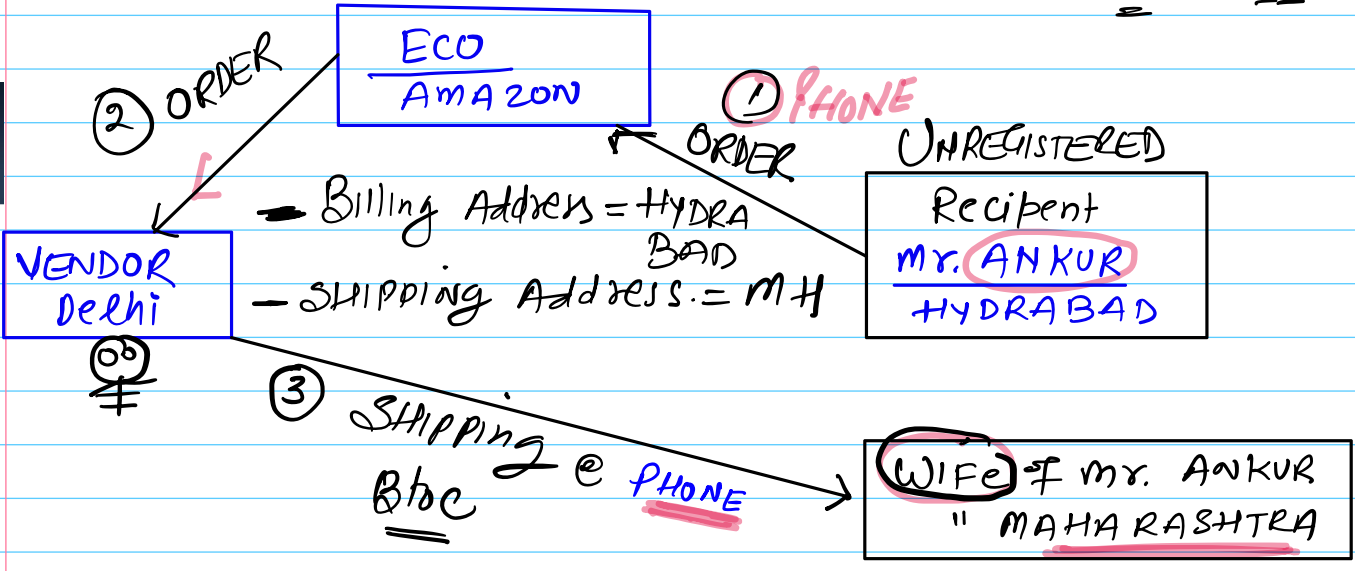 ECO
AMAZON
② ORDER
① PHONE
ORDER
UNREGISTERED
Recipent
Mr. ANKUR
HYDRABAD
- Billing Address = HYDRA
BAD
- SHIPPING Address. = MH
VENDOR
Delhi
③ SHIPPING @ PHONE
BtoC
WIFe of Mr. ANKUR
" MAHARASHTRA